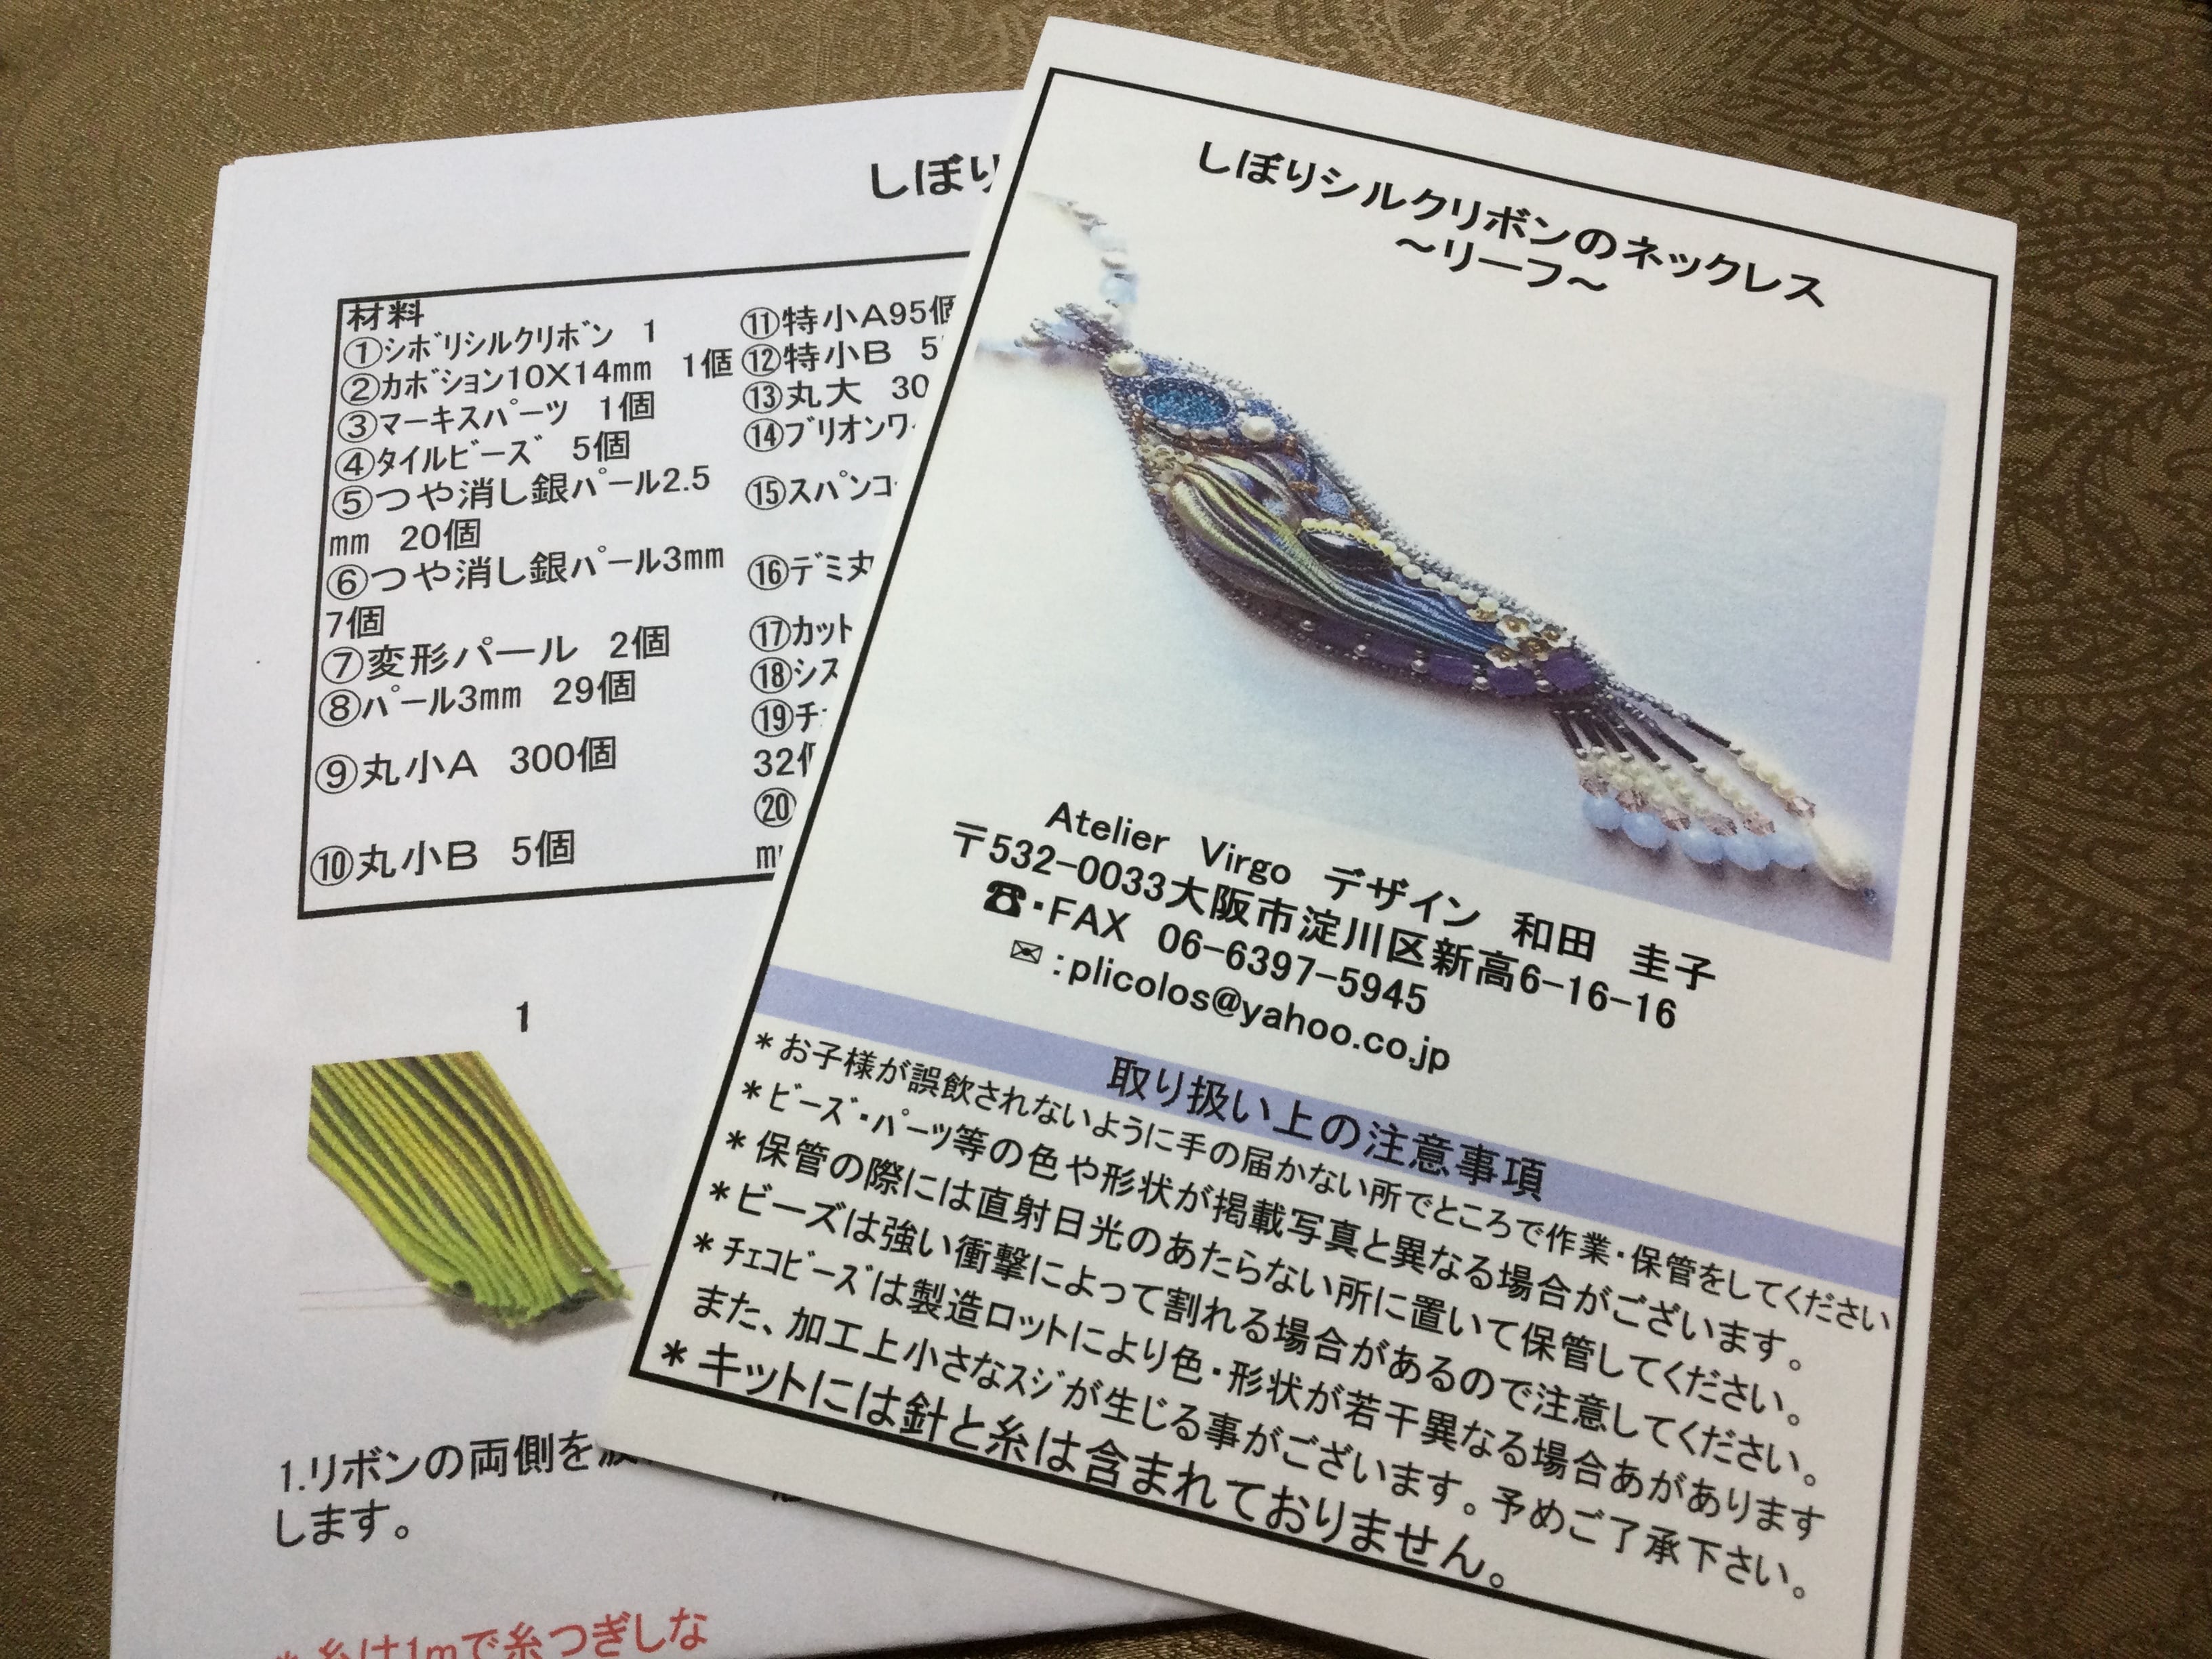 しぼり
材料
①シボリシルクリボン 1
②カボション10X14mm 1個
③マーキスパーツ 1個
④タイルビーズ 5個
⑤つや消し銀パール2.5
mm 20個
⑥つや消し銀パール3mm
7個
⑦変形パール 2個
⑧パール3mm 29個
⑨丸小A 300個
⑩丸小B 5個
⑪特小A95個
⑫特小B 5
⑬丸大 30
⑭ブリオンワ
⑮スパンコ
⑯デミ丸
⑰カット
⑱シス
⑲チ
32個
⑳
1
1.リボンの両側を
します。
*糸は1mで糸つぎしな
しぼりシルクリボンのネックレス
～リーフ～
Atelier Virgo デザイン 和田 圭子
〒532-0033大阪市淀川区新高6-16-16
☎・FAX 06-6397-5945
✉:plicolos@yahoo.co.jp
取り扱い上の注意事項
*お子様が誤飲されないように手の届かない所でところで作業・保管をしてください
*ビーズ・パーツ等の色や形状が掲載写真と異なる場合がございます。
*保管の際には直射日光のあたらない所に置いて保管してください。
*ビーズは強い衝撃によって割れる場合があるので注意してください。
*チェコビーズは製造ロットにより色・形状が若干異なる場合あがあります
また、加工上小さなスジが生じる事がございます。予めご了承下さい。
*キットには針と糸は含まれておりません。